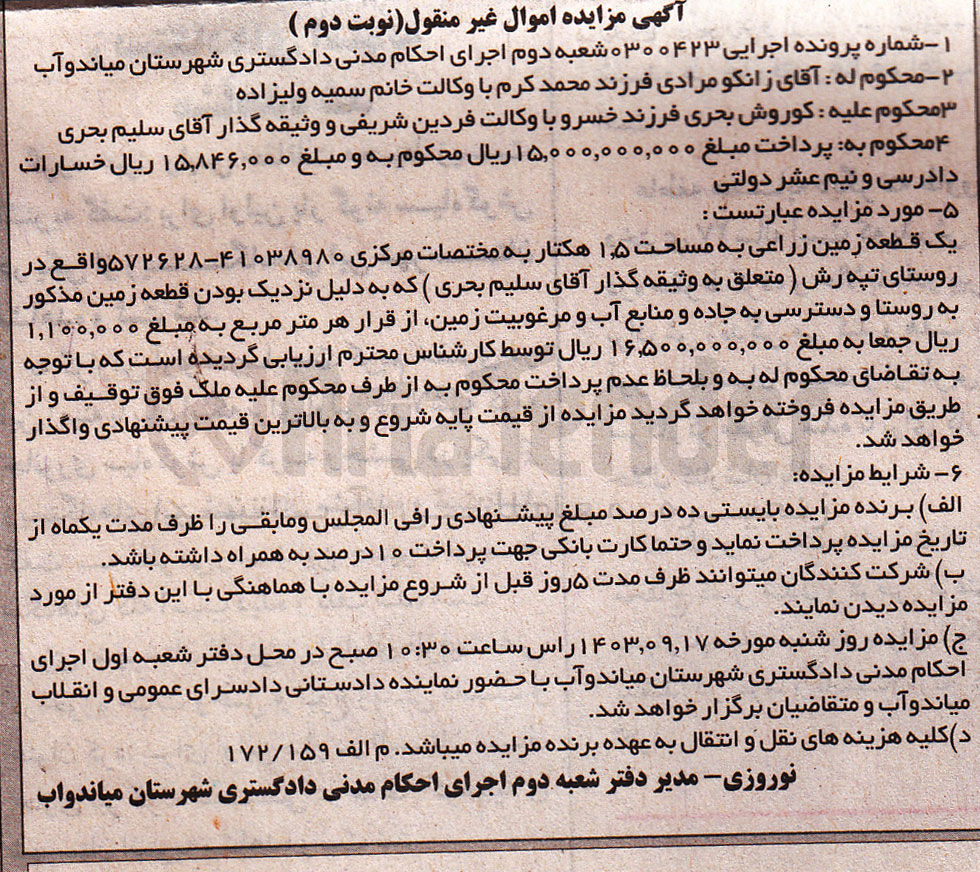 آگهی مزایده اموال غیر منقول(نوبت دوم )
۱-شماره پرونده اجرایی ۰۳۰۰۴۲۳شعبه دوم اجرای احکام مدنی دادگستری شهرستان میاندوآب
۲-محکوم له : آقای زانکو مرادی فرزند محمد کرم با وکالت خانم سمیه ولیزاده
۳محکوم علیه : کوروش بحری فرزند خسرو با وکالت فردین شریفی و وثیقه گذار آقای سلیم بحری
۴محکوم به: پرداخت مبلغ ۱۵,۰۰۰,۰۰۰,۰۰۰ریال محکوم به و مبلغ ۱۵,۸۴۶,۰۰۰ ریال خسارات
دادرسی و نیم عشر دولتی
۵- مورد مزایده عبارتست :
یک قطعه زمین زراعی به مساحت ۱,۵ هکتار به مختصات مرکزی ۴۱۰۳۸۹۸۰-۵۷۲۶۲۸واقع در
روستای تپه رش ( متعلق به وثیقه گذار آقای سلیم بحری ) که به دلیل نزدیک بودن قطعه زمین مذکور
به روستا و دسترسی به جاده و منابع آب و مرغوبیت زمین، از قرار هر متر مربع به مبلغ ۱,۱۰۰,۰۰۰
ریال جمعا به مبلغ ۱۶,۵۰۰,۰۰۰,۰۰۰ ریال توسط کارشناس محترم ارزیابی گردیده است که با توجه
به تقاضای محکوم له به و بلحاظ عدم پرداخت محکوم به از طرف محکوم علیه ملک فوق توقیف و از
طریق مزایده فروخته خواهد گردید مزایده از قیمت پایه شروع و به بالاترین قیمت پیشنهادی واگذار
خواهد شد.
۶- شرایط مزایده:
الف) برنده مزایده بایستی ده درصد مبلغ پیشنهادی را فی المجلس ومابقی را ظرف مدت یکماه از
تاریخ مزایده پرداخت نماید و حتما کارت بانکی جهت پرداخت ۱۰درصد به همراه داشته باشد.
ب) شرکت کنندگان میتوانند ظرف مدت ۵روز قبل از شروع مزایده با هماهنگی با این دفتر از مورد
مزایده دیدن نمایند.
ج) مزایده روز شنبه مورخه ۱۴۰۳,۰۹,۱۷راس ساعت ۱۰:۳۰ صبح در محل دفتر شعبه اول اجرای
احکام مدنی دادگستری شهرستان میاندوآب با حضور نماینده دادستانی دادسرای عمومی و انقلاب
میاندوآب و متقاضیان برگزار خواهد شد.
د)کلیه هزینه های نقل و انتقال به عهده برنده مزایده میباشد. م الف ۱۷۲/۱۵۹
نوروزی- مدیر دفتر شعبه دوم اجرای احکام مدنی دادگستری شهرستان میاندواب